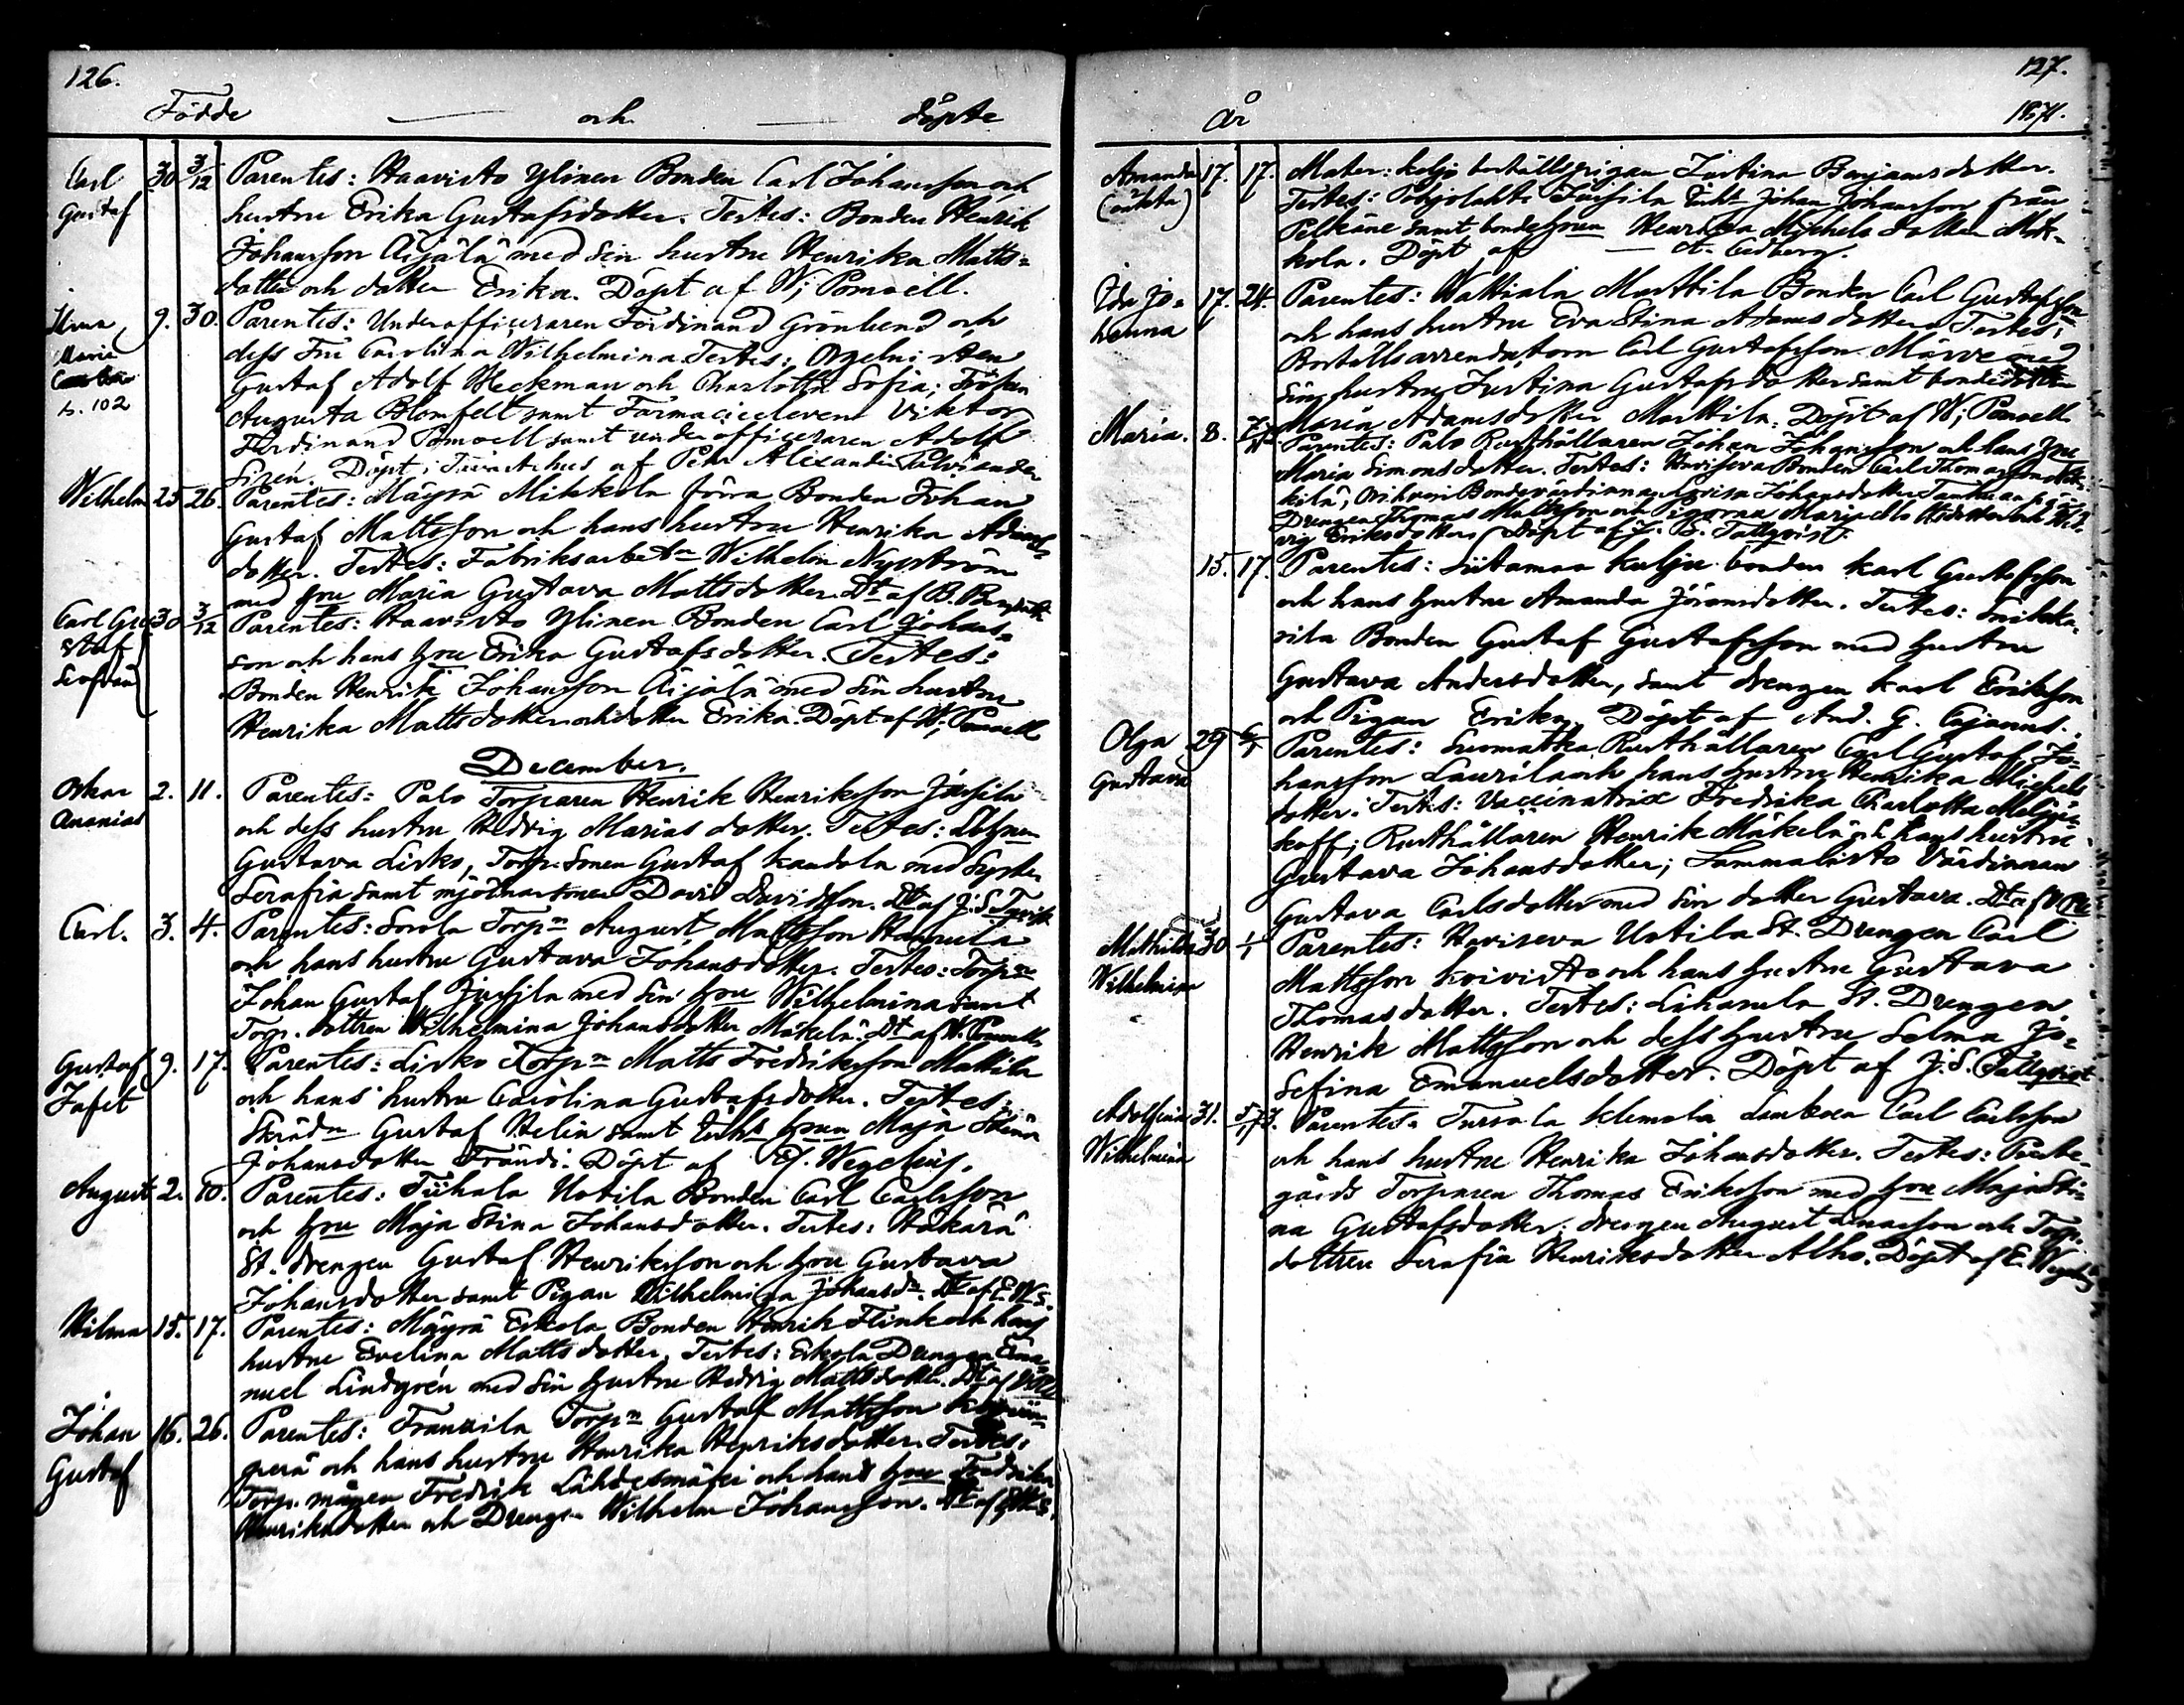 126.
Födde och döpte
Carl Gustaf 30 3/12 Parentes: Haavisto Ylinen Bonden Carl Johansson och
hustru Erika Gustafsdotter. Testes: Bonden Henrik
Johansson Äijälä med sin hustru Henrika Matts-
dotter och dotter Erika. Döpt af W; Pomoell.
Maria s. 102 9. 30. Parentes: Underofficeraren Ferdinand Grönlund och
dess Fru Carolina Wilhelmina. Testes: Orgelnisten
Gustaf Adolf Heckman och Charlotta Sofia; Fröken
Augusta Blomfelt samt Farmacieeleven Viktor
Ferdinand Pomoell samt underofficeraren Adolf
Sirén. Döpt i Tavastehus af Pehr Alexander
Wilhelm 25 26. Parentes: Mäyrä Mikkola förra Bonden Johan
Gustaf Mattsson och hans hustru Henrika Adams-
dotter. Testes: Fabriksarbetn Wilhelm Nyström
med hru Maria Gustava Mattsdotter. Dt af B.
Carl Gustaf 30 3/12 Parentes: Haavisto Ylinen Bonden Carl Johans-
son och hans hru Erika Gustafsdotter. Testes:
Bonden Henrik Johansson Äijälä med sin hustru
Henrika Mattsdotter och dotter Erika. Döpt af W; Pomoell
December.
Oskar Ananias 2. 11. Parentes: Palo Torparen Henrik Henriksson Jussila
och dess hustru Hedvig Mariasdotter. Testes:
Gustava Lisko, Torp. Sonen Gustaf Kandola med Syster
Serafia samt mjölnarsonen David Davidsson. Dt af J. S.
Carl. 3. 4. Parentes: Sorola Torpn August Mattsson Hannula
och hans hustru Gustava Johansdotter. Testes: Torpn
Johan Gustaf Jussila med sin hru Wilhelmina samt
Torp. dottren Wilhelmina Johansdotter Mäkelä. Dt af W. Pomoell
Gustaf Jafet 9. 17. Parentes: Lisko Torpn Matts Fredriksson Mattila
och hans hustru Carolina Gustafsdotter. Testes:
Skrädn Gustaf Helin samt hrun Maja Stina
Johansdotter Frändi. Döpt af E. Wegelius.
August 2. 10. Parentes: Tiihala Uotila Bonden Carl Carlsson
och hru Maja Stina Johansdotter. Testes: Häkärä
St. drengen Gustaf Henriksson och hru Gustava
Johansdotter samt Pigan Wilhelmina Johansdr. Dt af E. W s.
Hilma 15. 17. Parentes: Mäyrä Erkola Bonden Henrik Flink och hans
hustru Evelina Mattsdotter. Testes: Erkola Drengen Ema-
nuel Lindgrén med sin hustru Hedvig Mattsdotter. Dt af
Johan Gustaf 16. 26. Parentes: Franssila Torpn Gustaf Mattsson
perä och hans hustru Henrika Henriksdotter. Testes:
Torp. mågen Fredrik Lähdesmäki och hans hru Fredrika
Henriksdotter och Drengen Wilhelm Johansson. Dt af
127.
År 1871.
Amanda (oäkta) 17. 17. Mater: Koljo boställspigan Justina Benjamsdotter.
Testes: Pohjolahti Jussila Johan Johansson från
Pelkäne samt bondehrun Henrika Michelsdotter Mik-
kola. Döpt af A. Cedberg.
Ida Johanna 17. 24. Parentes: Wattiala Marttila Bonden Carl Gustafsson
och hans hustru Eva Stina Adamsdotter. Testes:
Boställsarrendatorn Carl Gustafsson Märve med
sin hustru Justina Gustafsdotter samt bonde
Maria Adamsdotter Marttila. Döpt af W; Pomoell
Maria. 8. Parentes: Palo Rusthållaren Johan Johansson och hans hru
Maria Simonsdotter. Testes: Haviseva Bonden Carl Thomasson
kilä, Bondevärdinnan Lovisa Johansdotter
Drengen Thomas Mattsson och Pigorna Maria Mattsdotter och Hed-
vig Eriksdotter. Döpt af J. S. Tallqvist.
15. 17. Parentes: Siitamaa Kulju bonden Karl Gustafsson
och hans hustru Amanda Jöransdotter. Testes:
sila Bonden Gustaf Gustafsson med hustru
Gustava Andersdotter, samt drengen Karl Eriksson
och Pigan Erika. Döpt af And. G. Cajanus.
Olga Gustava 29 6/1 Parentes: Suomatka Rusthållaren Carl Gustaf Jo-
hansson Laurila och hans hustru Henrika Michels-
dotter. Testes: Vaccinatrix Fredrika Charlotta
koff; Rusthållaren Henrik Mäkelä och hans hustru
Gustava Johansdotter; Sammalisto Värdinnan
Gustava Carlsdotter med sin dotter Gustava. Dt af
Mathilda Wilhelmina 30 1/1 Parentes: Haviseva Uotila St. Drengen Carl
Mattsson Koivisto och hans hustru Gustava
Thomasdotter. Testes: Lihasula St. Drengen
Henrik Mattsson och dess hustru Selma Jo-
sefina Emanuelsdotter. Döpt af J. S. Tallqvist
Adolfina Wilhelmina 31. Parentes: Tursola Klemola Carl Carlsson
och hans hustru Henrika Johansdotter. Testes:
gårds Torparen Thomas Eriksson med hru Maja Sti-
na Gustafsdotter. drengen August och Torp.
dottren Serafia Henriksdotter Alho. Döpt af E. Wegelius